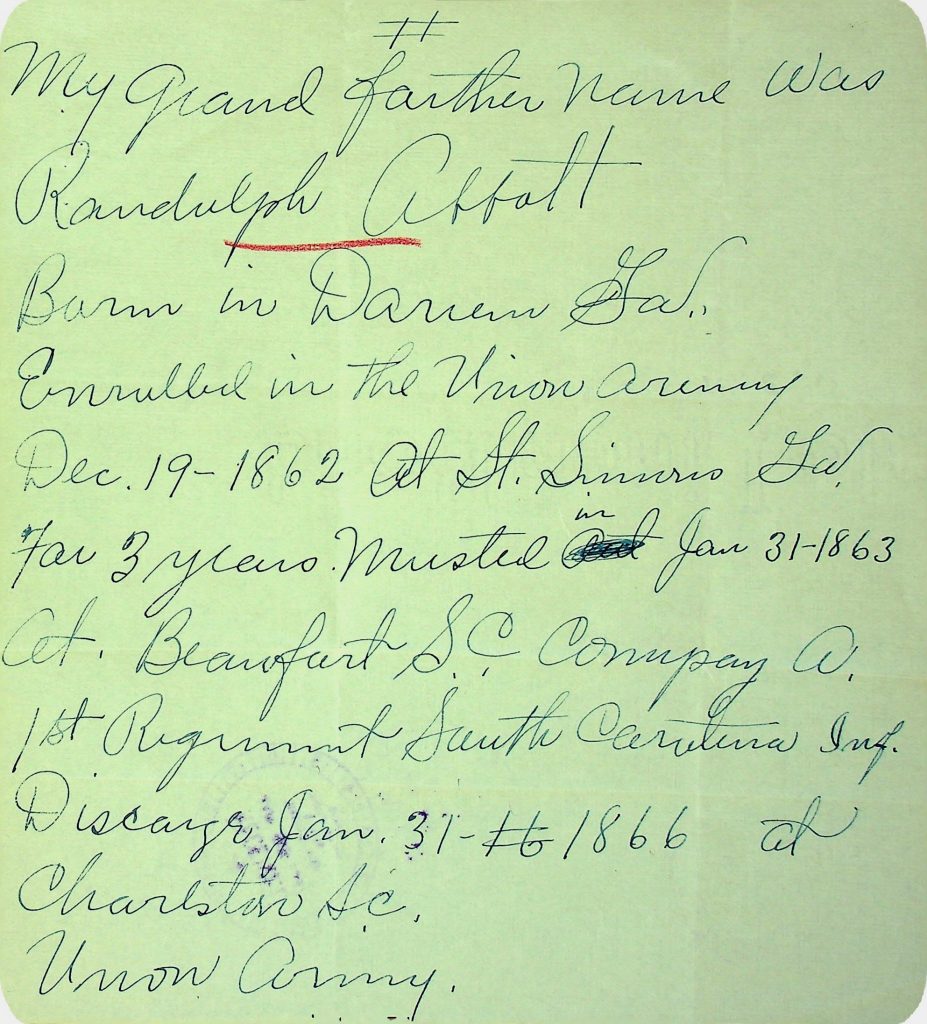 My Grand farther Name was
Randulph Abbott
Born in Darien Ga.
Enrulled in the Union Aremy
Dec. 19-1862 At St. Simons Ga.
in
For 3 years. Musted Jan 31-1863
At. Beaufort S.C. Compay A.
1st Regiment South Carolina Inf.
Discarge Jan. 31- 1866 at
Charlston S.C.
Union Army.